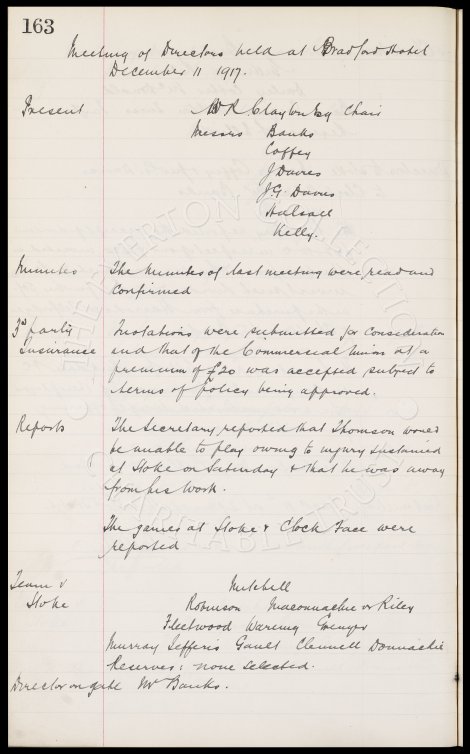 163
Meeting of Directors held at Bradford Hotel
December 11 1917.
Present W R Clayton Esq Chair
Messrs Banks
Coffey
J Davies
J.G. Davies
Halsall
Kelly.
Minutes The Minutes of last meeting were read and
confirmed
3rd party Quotations were submitted for consideration
Insurance and that of the Commercial Union at a
premium of £20 was accepted subject to
terms of policy being approved.
Reports The Secretary reported that Thomson would
be unable to play owing to injury sustained
at Stoke on Saturday & that he was away
from his work.
The games at Stoke & Clock Face were
reported
Team v Mitchell
Stoke Robinson Maconnachie or Riley
Fleetwood Wareing Grenyer
Murray Jefferis Gault Clennell Donnachie
Reserves: none selected.
Director on gate Mr Banks.
THE EVERTON COLLECTION
CHARITABLE TRUST